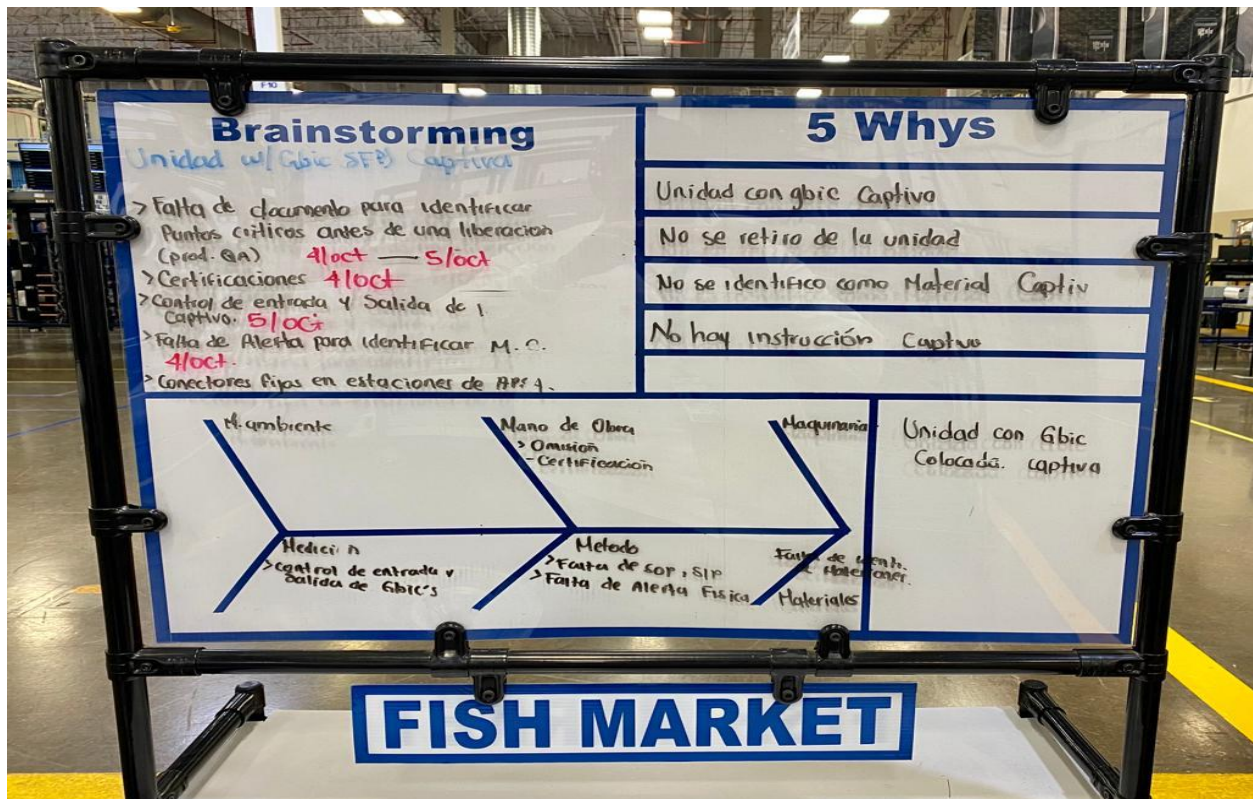 F10
Brainstorming
Unidad w/ Gbic SFP) Captiva
> Falta de documento para identificar
Puntos criticos antes de una liberacion
(prod. QA) 4/oct — 5/oct
> Certificaciones 4/oct
> Control de entrada y Salida de
Captivo. 5/oct
> Falta de Alerta para identificar M. C.
4/oct.
> Conectores fijos en estaciones de
5 Whys
Unidad con gbic Captivo
No se retiro de la unidad
No se identifico como Material Captiv
No hay instrucción Captivo
M. ambiente
Mano de Obra
> Omisión
- Certificacion
Maquinaria
Medici n
> Control de entrada y
Salida de Gbic's
Metodo
> Falta de SOP, SIP
> Falta de Alerta Fisica
Falta de
Materiales
Unidad con Gbic
Colocada. captiva
FISH MARKET